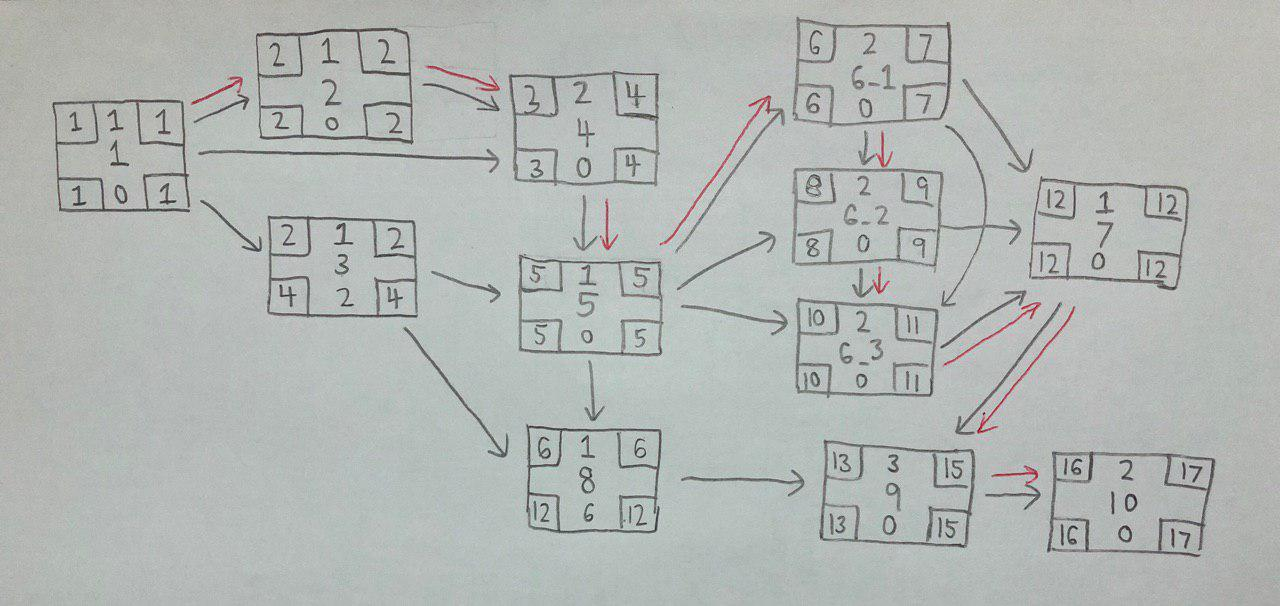 1 1 1
1
1 0 1
2 1 2
2
2 0 2
2 1 2
3
4 2 4
3 2 4
4
3 0 4
5 1 5
5
5 0 5
6 1 6
8
12 6 12
6 2 7
6_1
6 0 7
8 2 9
6_2
8 0 9
10 2 11
6_3
10 0 11
12 1 12
7
12 0 12
13 3 15
9
13 0 15
16 2 17
10
16 0 17